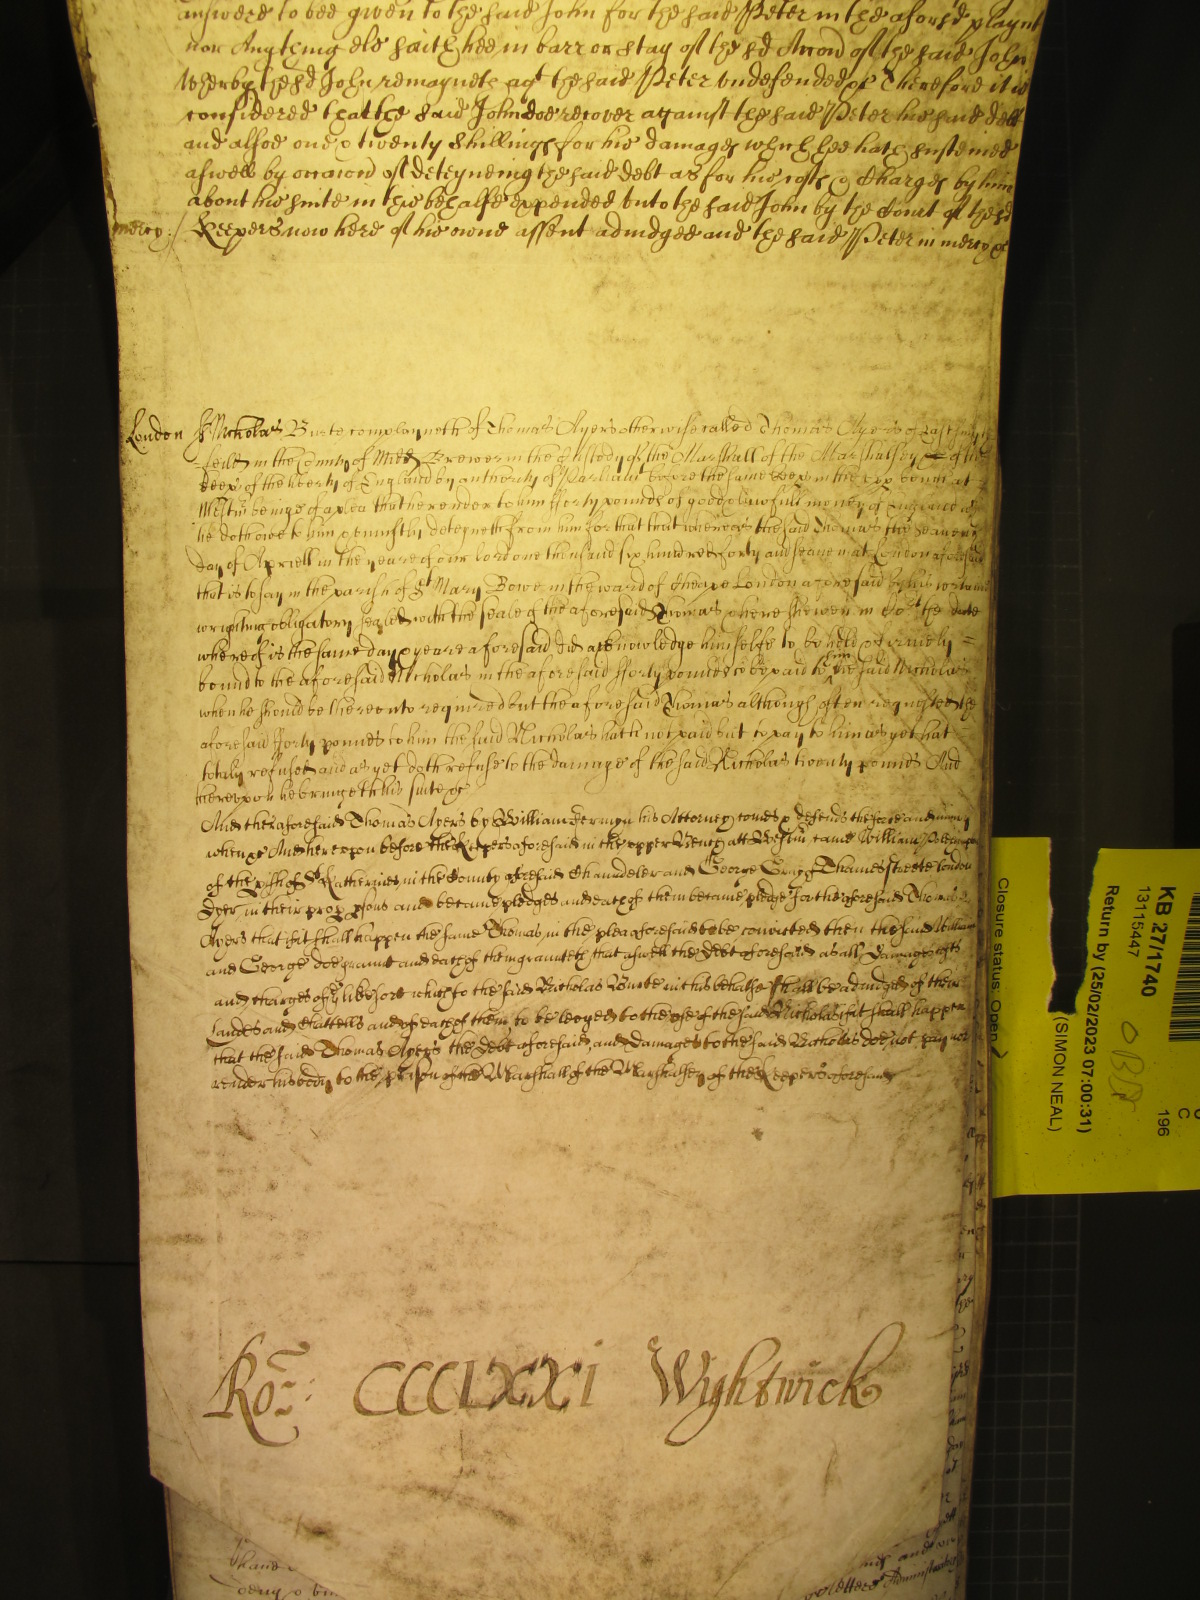 answere to bee given to the said John for the said Peter in the aforsd playnt
nor Anything els saith hee in barr or stay of the sd Accord of the said John
Wherby the sd John remayneth agt the said Peter undefended &c Therefore it is
considered that the said John doe recover against the said Peter his said debt
and alsoe one & twenty shillings for his damages which hee hath susteined
aswell by occacion of deteyneing the said debt as for his costs & Charges by him
about his suite in this behalfe expended unto the said John by the Court of the sd
mercy:/ Keepers now here of his owne assent adiudged and the said Peter in mercy &c
London ss Nicholas Bute complayneth of Thomas Ayers otherwise called Thomas Ayers of East Smith
feild in the County of Midd Brewer in the Custody of the Marshall of the Marshalsey of the
keep of the liberty of England by authority of Parliamt before the same keep in the upp bench at
Westm being of a plea that he render to him fforty pounds of good & lawfull money of England wch
he doth owe to him & uniustly deteyneth from him for that that whereas the said Thomas the seaventh
day of Aprill in the yeare of our Lord one thousand six hundred forty and seaven at London aforesaid
that is to say in the parish of St Mary Bowe in the ward of Cheape London aforesaid by his certaine
wrighting obligatory sealed with the seale of the aforesaid Thomas & here shewen in Cort the date
whereof is the same day & yeare aforesaid did acknowledge himselfe to be held & firmely =
bound to the aforesaid Nicholas in the aforesaid fforty pounds to be paid to him the said Nicholas
when he should be thereunto required but the aforesaid Thomas although often requested the
aforesaid forty pounds to him the said Nicholas hath not paid but to pay to him as yet hath =
totaly refused and as yet doth refuse to the damage of the said Nicholas twenty pounds And
thereupon he bringeth his suite &c
And the aforesaid Thomas Ayers by William Jermyn his Attorney comes & defends the force and iniury
when &c And hereupon before the Keepers aforesaid in the upper Bench att Westm came William
of the pish of St Katherines in the County aforesaid Chaundeler and George Gray of Thames streete London
Dyer in their prop psons and became pledges and each of them became pledge for the aforesaid Thomas
Ayers that if it shall happen the same Thomas in the plea aforesaid to be convicted then the said William
and George doe graunt and each of them graunteth that aswell the Debt aforesaid as all Damages costs
and charges of ye like sort which to the said Nicholas Bute in this behalfe shall be adiudged of their
Lands and Chattells and of each of them to be levyed to the use of the said Nicholas if it shall happen
that the said Thomas Ayers the Debt aforesaid, and damages to the said Nicholas doe not pay nor
render his body to the prison of the Marshall of the Marshalsey of the Keepers aforesaid
Ro: CCCLXXI Wightwick
KB 27/1740
13115447
Return by (25/02/2023 07:00:31)
(SIMON NEAL)
Closure status: Open
C
196